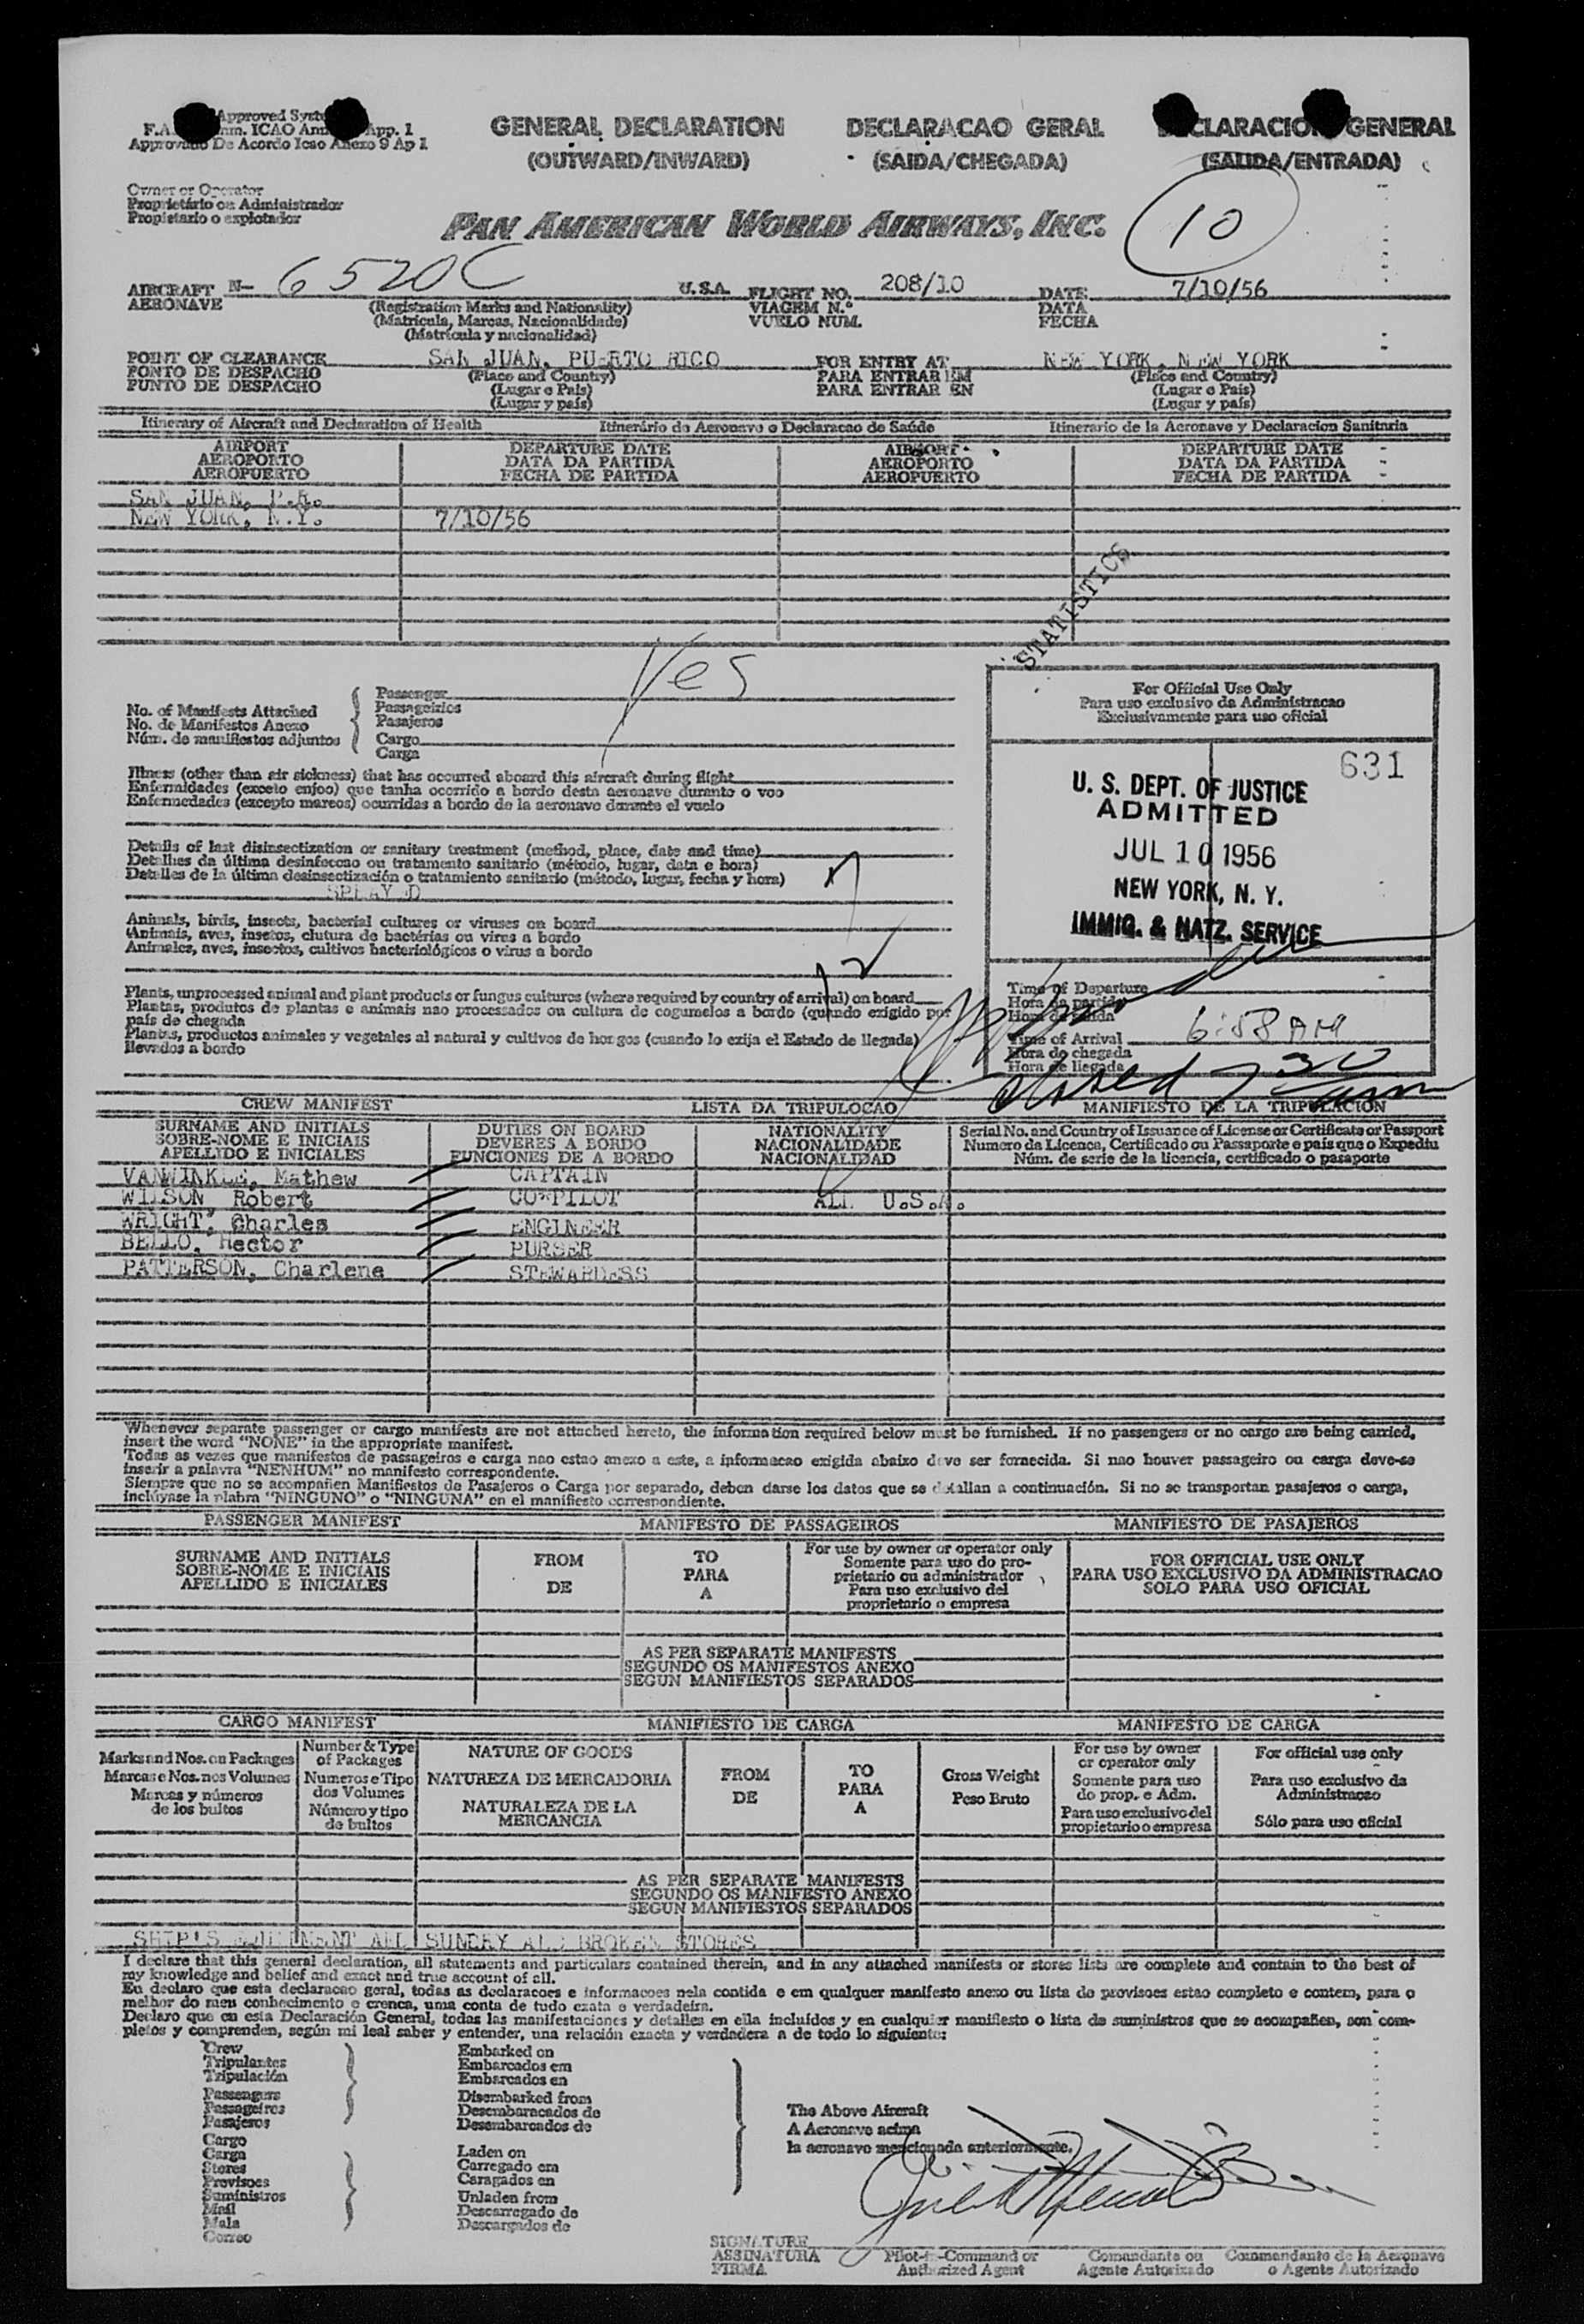 Approved
F.A. ICAO App. 1
Approvado De Acordo Icao Anexo 9 Ap 1
GENERAL DECLARATION DECLARACAO GERAL DECLARACION GENERAL
(OUTWARD/INWARD) (SAIDA/CHEGADA) (SALIDA/ENTRADA)
Owner or Operator
Proprietário ou Administrador
Propietario o explotador
PAN AMERICAN WORLD AIRWAYS, INC. 10
AIRCRAFT N- 6520C U.S.A. FLIGHT NO. 208/10 DATE 7/10/56
AERONAVE (Registration Marks and Nationality) VIAGEM N.º DATA
(Matricula, Marcas, Nacionalidade) VUELO NUM. FECHA
(Matrícula y nacionalidad)
POINT OF CLEARANCE SAN JUAN, PUERTO RICO FOR ENTRY AT NEW YORK, NEW YORK
PONTO DE DESPACHO (Place and Country) PARA ENTRAR EM (Place and Country)
PUNTO DE DESPACHO (Lugar e Pais) PARA ENTRAR EN (Lugar e Pais)
(Lugar y país) (Lugar y país)
Itinerary of Aircraft and Declaration of Health Itinerário da Aeronave e Declaracao de Saúde Itinerario de la Aeronave y Declaracion Sanitaria
AIRPORT DEPARTURE DATE AIRPORT DEPARTURE DATE
AEROPORTO DATA DA PARTIDA AEROPORTO DATA DA PARTIDA
AEROPUERTO FECHA DE PARTIDA AEROPUERTO FECHA DE PARTIDA
SAN JUAN, P.R.
NEW YORK, N.Y. 7/10/56
STATISTICS
Yes
No. of Manifests Attached
No. de Manifestos Anexo
Núm. de manifiestos adjuntos
Passenger
Passageirios
Pasajeros
Cargo
Carga
Illness (other than air sickness) that has occurred aboard this aircraft during flight
Enfermidades (exceto enjoo) que tanha ocorrido a bordo desta aeronave durante o voo
Enfermedades (excepto mareos) ocurridas a bordo de la aeronave durante el vuelo
Details of last disinsectization or sanitary treatment (method, place, date and time)
Detalhes da última desinfeccao ou tratamento sanitario (método, lugar, data e hora)
Detalles de la última desinsectización o tratamiento sanitario (método, lugar, fecha y hora)
SPRAYED
Animals, birds, insects, bacterial cultures or viruses on board
Animais, aves, insetos, clutura de bactérias ou virus a bordo
Animales, aves, insectos, cultivos bacteriológicos o virus a bordo
Plants, unprocessed animal and plant products or fungus cultures (where required by country of arrival) on board
Plantas, produtos de plantas e animais nao processados ou cultura de cogumelos a bordo (quando exigido por
país de chegada
Plantas, productos animales y vegetales al natural y cultivos de hongos (cuando lo exija el Estado de llegada)
llevados a bordo
For Official Use Only
Para uso exclusivo da Administracao
Exclusivamente para uso oficial
631
U. S. DEPT. OF JUSTICE
ADMITTED
JUL 10 1956
NEW YORK, N. Y.
IMMIG. & NATZ. SERVICE
Time of Departure
Hora da partida
Hora de salida
Time of Arrival 6:58 AM
Hora do chegada
Hora de llegada
closed 730
CREW MANIFEST LISTA DA TRIPULOCAO MANIFIESTO DE LA TRIPULACION
SURNAME AND INITIALS DUTIES ON BOARD NATIONALITY Serial No. and Country of Issuance of License or Certificate or Passport
SOBRE-NOME E INICIAIS DEVERES A BORDO NACIONALIDADE Numero da Licenca, Certificado ou Passaporte e pais que o Expediu
APELLIDO E INICIALES FUNCIONES DE A BORDO NACIONALIDAD Núm. de serie de la licencia, certificado o pasaporte
VANWINKLE, Mathew CAPTAIN
WILSON Robert CO-PILOT ALL U.S.A.
WRIGHT, Charles ENGINEER
BELLO, Hector PURSER
PATTERSON, Charlene STEWARDESS
Whenever separate passenger or cargo manifests are not attached hereto, the information required below must be furnished. If no passengers or no cargo are being carried,
insert the word "NONE" in the appropriate manifest.
Todas as vezes que manifestos de passageiros e carga nao estao anexo a este, a informacao exigida abaixo deve ser fornecida. Si nao houver passageiro ou carga deve-se
inserir a palavra "NENHUM" no manifesto correspondente.
Siempre que no se acompañen Manifiestos de Pasajeros o Carga por separado, deben darse los datos que se detallan a continuación. Si no se transportan pasajeros o carga,
inclúyase la plabra "NINGUNO" o "NINGUNA" en el manifiesto correspondiente.
PASSENGER MANIFEST MANIFESTO DE PASSAGEIROS MANIFIESTO DE PASAJEROS
SURNAME AND INITIALS
SOBRE-NOME E INICIAIS
APELLIDO E INICIALES
FROM
DE
TO
PARA
A
For use by owner or operator only
Somente para uso do pro-
prietario ou administrador
Para uso exclusivo del
proprietario o empresa
FOR OFFICIAL USE ONLY
PARA USO EXCLUSIVO DA ADMINISTRACAO
SOLO PARA USO OFICIAL
AS PER SEPARATE MANIFESTS
SEGUNDO OS MANIFESTOS ANEXO
SEGUN MANIFIESTOS SEPARADOS
CARGO MANIFEST MANIFIESTO DE CARGA MANIFESTO DE CARGA
Marks and Nos. on Packages
Marcas e Nos. nos Volumes
Marcas y números
de los bultos
Number & Type
of Packages
Numeros e Tipo
dos Volumes
Número y tipo
de bultos
NATURE OF GOODS
NATUREZA DE MERCADORIA
NATURALEZA DE LA
MERCANCIA
FROM
DE
TO
PARA
A
Gross Weight
Peso Bruto
For use by owner
or operator only
Somente para uso
do prop. e Adm.
Para uso exclusivo del
propietario o empresa
For official use only
Para uso exclusivo da
Administracao
Sólo para uso oficial
AS PER SEPARATE MANIFESTS
SEGUNDO OS MANIFESTO ANEXO
SEGUN MANIFIESTOS SEPARADOS
SHIP'S EQUIPMENT ALL SUNDRY AND BROKEN STORES
I declare that this general declaration, all statements and particulars contained therein, and in any attached manifests or stores lists are complete and contain to the best of
my knowledge and belief and exact and true account of all.
Eu declaro que esta declaracao geral, todas as declaracoes e informacoes nela contida e em qualquer manifesto anexo ou lista de provisoes estao completo e contem, para o
melhor do meu conhecimento e crenca, uma conta de tudo exata e verdadeira.
Declaro que en esta Declaración General, todas las manifestaciones y detalles en ella incluídos y en cualquier manifiesto o lista de suministros que se acompañen, son com-
pletos y comprenden, según mi leal saber y entender, una relación exacta y verdadera a de todo lo siguiente:
Crew
Tripulantes
Tripulación
Passengers
Passageiros
Pasajeros
Cargo
Carga
Stores
Provisoes
Suministros
Mail
Mala
Correo
Embarked on
Embarcados em
Embarcados en
Disembarked from
Desembaracados de
Desembarcados de
Laden on
Carregado em
Caragados en
Unladen from
Descarregado de
Descargados de
The Above Aircraft
A Aeronave acima
la aeronave mencionada anteriormente.
SIGNATURE
ASSINATURA Pilot-in-Command or Comandante ou Commandante de la Aeronave
FIRMA Authorized Agent Agente Autorizado o Agente Autorizado